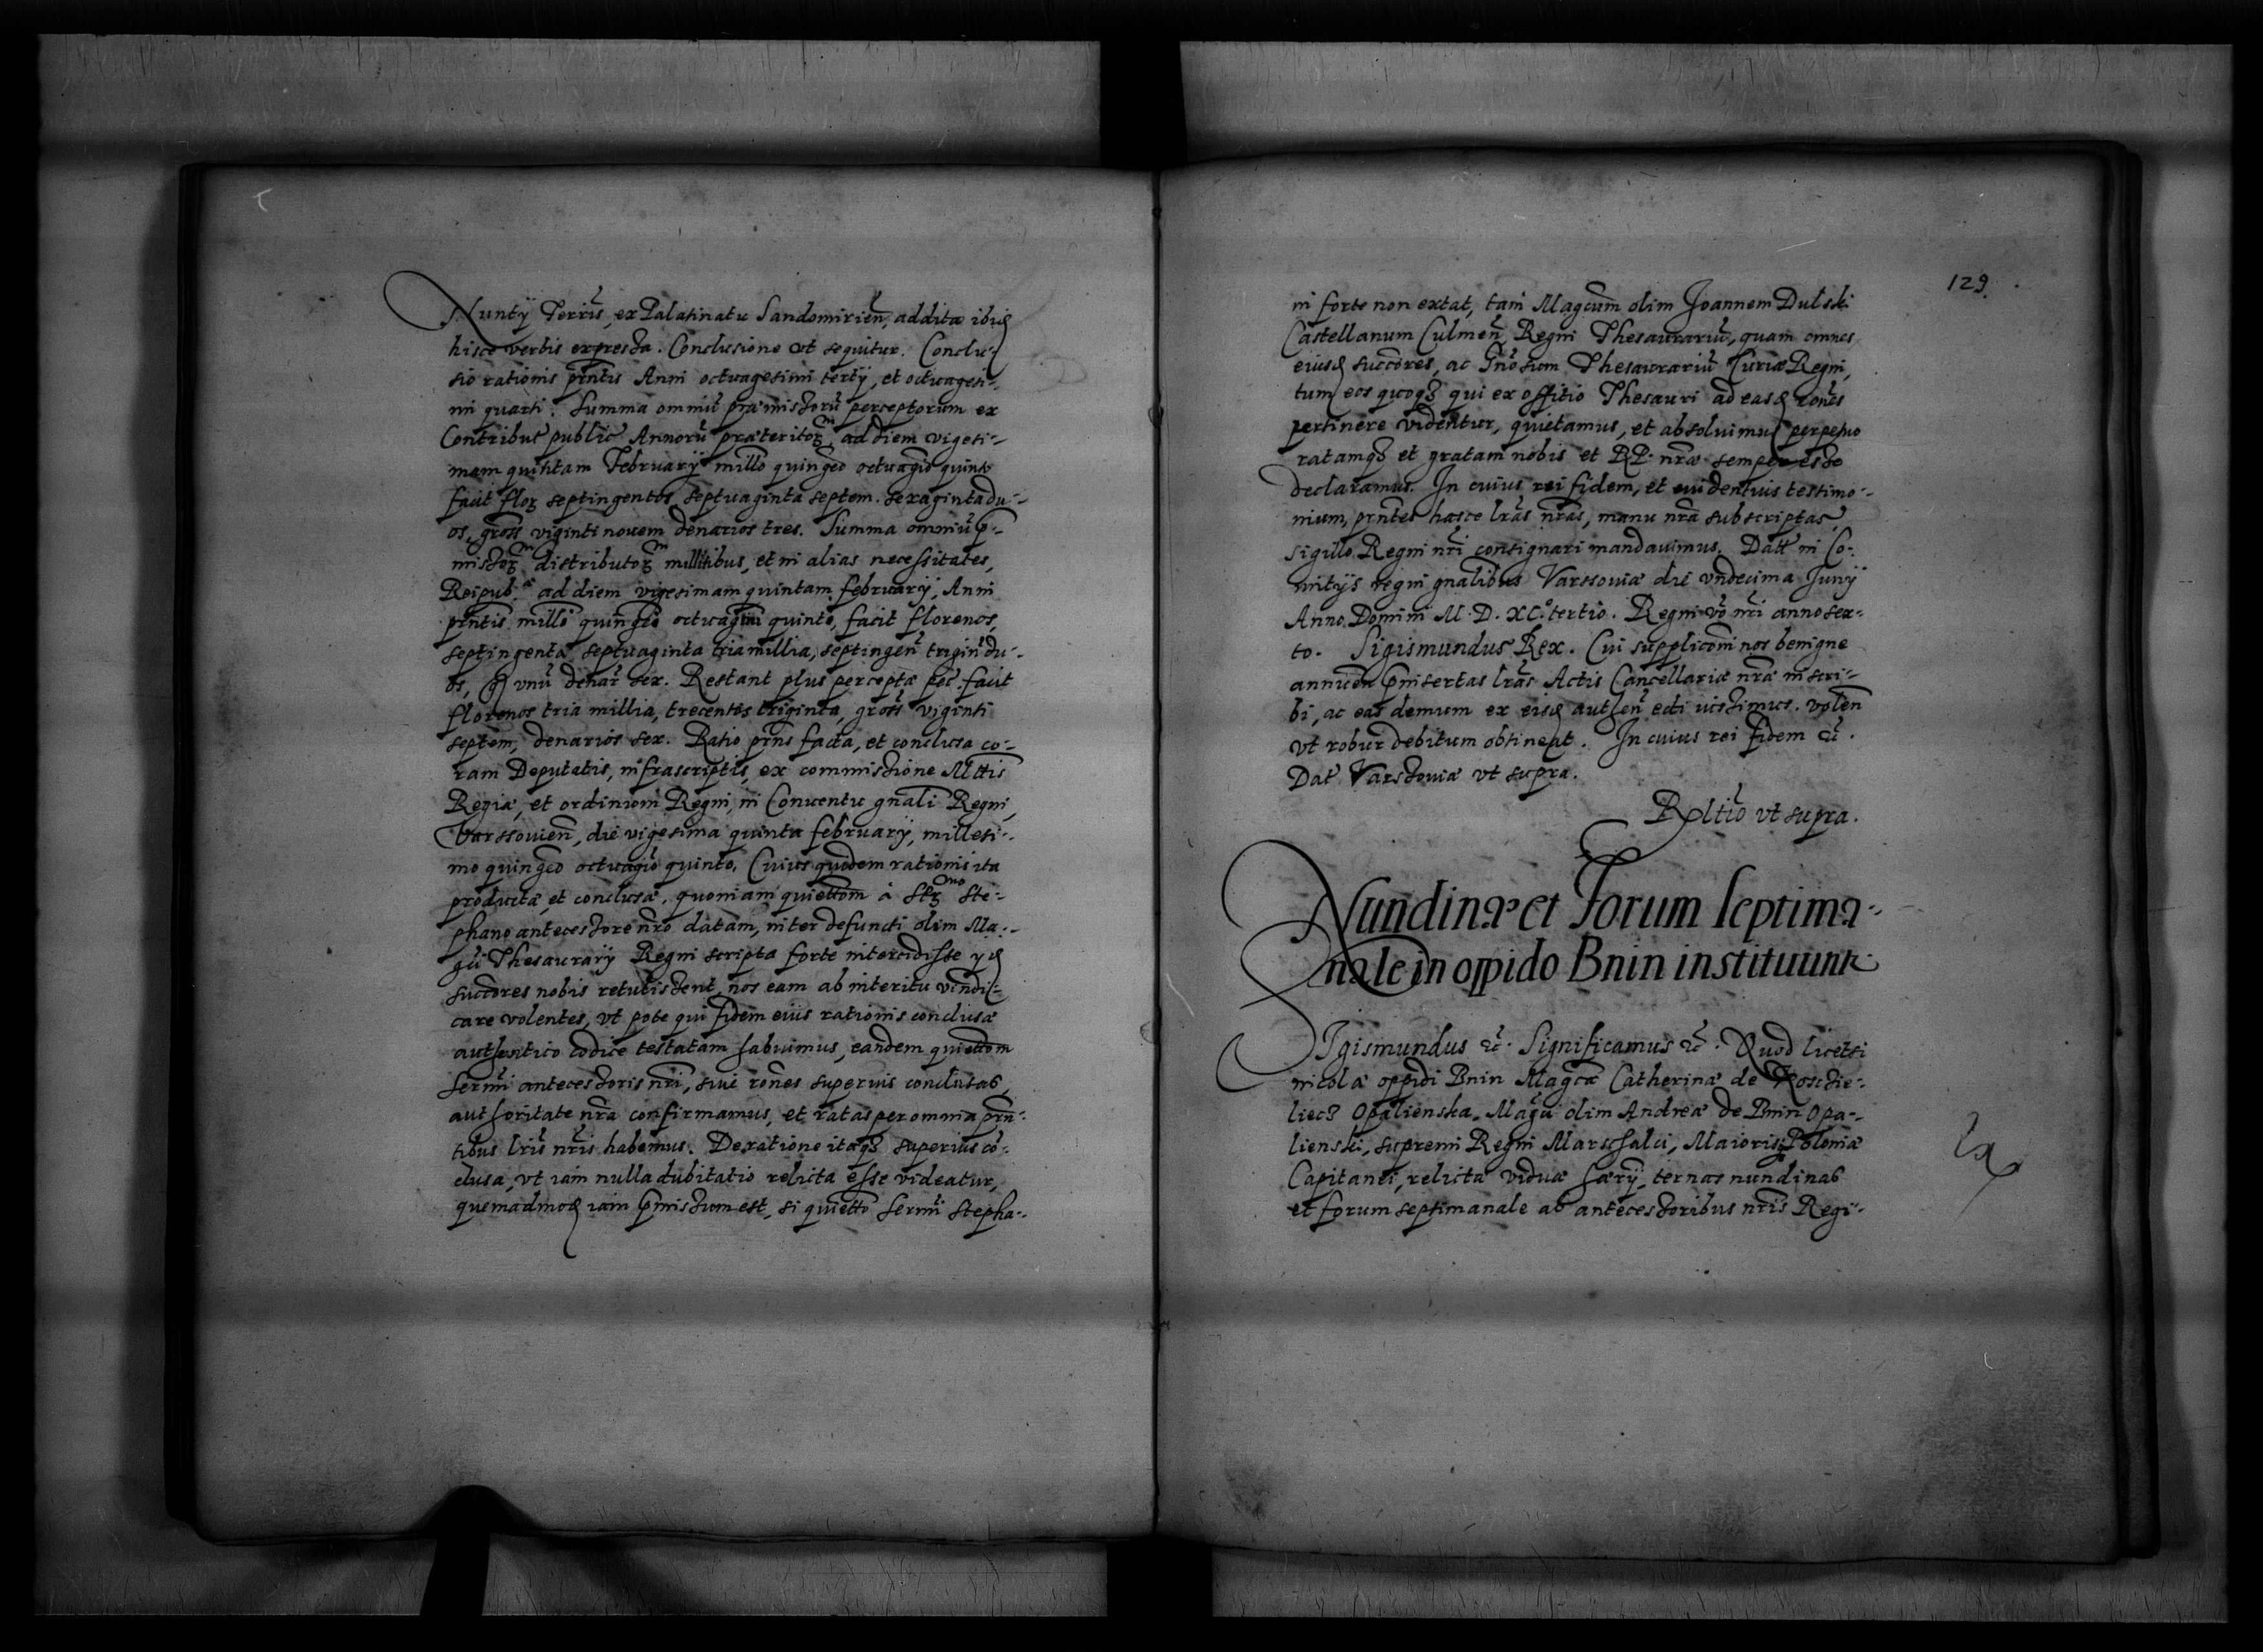 Nuntÿ Terris̃, ex Palatinatu Sandomirien̄, addita ibiđ
hisce verbis expressa. Conclusione vt sequitur. Conclu-
sio rationis pr̄ntis Anni octuagesimi tertÿ, et octuagesi-
mi quarti. Summa omniũ præmissorũ perceptorum ex
Contribut public Annorũ præteritoꝝ, ad diem vigesi-
mam quintam Februarÿ millō quingēo octuagīo quinto
facit floꝝ septingentos septuaginta septem. sexaginta du-
os, gross viginti nouem denarios tres. Summa omniũ p̄-
missoꝝ distributoꝝ millitibus, et in alias necessitates,
Reipub.ᵉ ad diem vigesimam quintam februarÿ, Anni
pr̄ntis millō quingēo octuagīmi quinto, facit florenos,
septingenta septuaginta tria millia, septingen̄ trigin̄ du-
os, gͬ vnũ denar̄ sex. Restant plus perceptæ pec̄. facit
florenos tria millia, trecentos triginta, gross viginti
septem, denarios sex. Ratio prn̄s facta, et conclusa co-
ram Deputatis, infrascriptis, ex commissione Mttis
Regiæ, et ordinum Regni, in Conuentu gnāli Regni,
Varssouien̄, die vigesima quinta februarÿ, millesi-
mo quingēo octuagīo quinto. Cuius quidem rationis ita
productæ, et conclusæ, quoniam quiettōm à Seꝝᵐᵒ Ste-
phano antecessore nr̄o datam, inter defuncti olim Ma-
gci Thesaurarÿ Regni scripta forte intercidisse yđ
succōres nobis retulissent, nos eam ab interitu vindi-
care volentes, vt pote qui fidem eius rationis conclusæ
authentico codice testatam habuimus, eandem quiettōm
Serm̄i antecessoris nr̄i, siue rōnes superius conclusas,
authoritate nr̄a confirmamus, et ratas per omnia prn̄-
tibus lr̄is nr̄is habemus. De ratione itaqȝ superius cō-
clusa, vt iam nulla dubitatio relicta esse videatur,
quemadmođ iam p̄missum est, si quietto Serm̄i Stepha-
129.
ni forte non extat, tam Magcum̄ olim Joannem Dulski
Castellanum Culmen̄, Regni Thesaurariũ, quam omnes
eiusđ succōres, ac Gn̄osum Thesaurariũ Curiæ Regni,
tum eos quoqȝ qui ex offitio Thesauri ad easđ rōnes
pertinere videntur, quietamus, et absoluimus perpetuo
ratamqȝ et gratam nobis et RP. nr̄æ semper esse
declaramus. In cuius rei fidem, et euidentius testimo-
nium, prn̄tes hasce lr̄as nr̄as, manu nr̄a subscriptas,
sigillo Regni nr̄i consignari mandauimus. Datt in Co-
mitÿs regni gnālibus Varssouiæ die vndecima Junÿ
Anno Domini M.D.XC.° tertio. Regni vō nr̄i anno sex-
to. Sigismundus Rex. Cui supplicōni nos benigne
annuen̄ p̄insertas lr̄as Actis Cancellariæ nr̄æ inscri-
bi, ac eas demum ex eisđ authen̄ edi iussimus. volen̄
vt robur debitum obtineat. In cuius rei fidem ꝛc̄.
Dat Varssouiæ vt supra.
Rltio vt supra.
Nundinæ et Forum Septima-
nale in oppido Bnin instituunt~
SIgismundus ꝛc̄. Significamus ꝛc̄. Quod licet si
incolæ oppidi Bnin Magcæ Catherinæ de Kosscie-
liecȝ Opalienska, Magci olim Andreæ de Bnin Opa-
lienski, supremi Regni Marschalci, Maioris Poloniæ
Capitanei, relicta viduæ hærÿ, ternas nundinas
et forum septimanale ab antecessoribus nr̄is Regi-